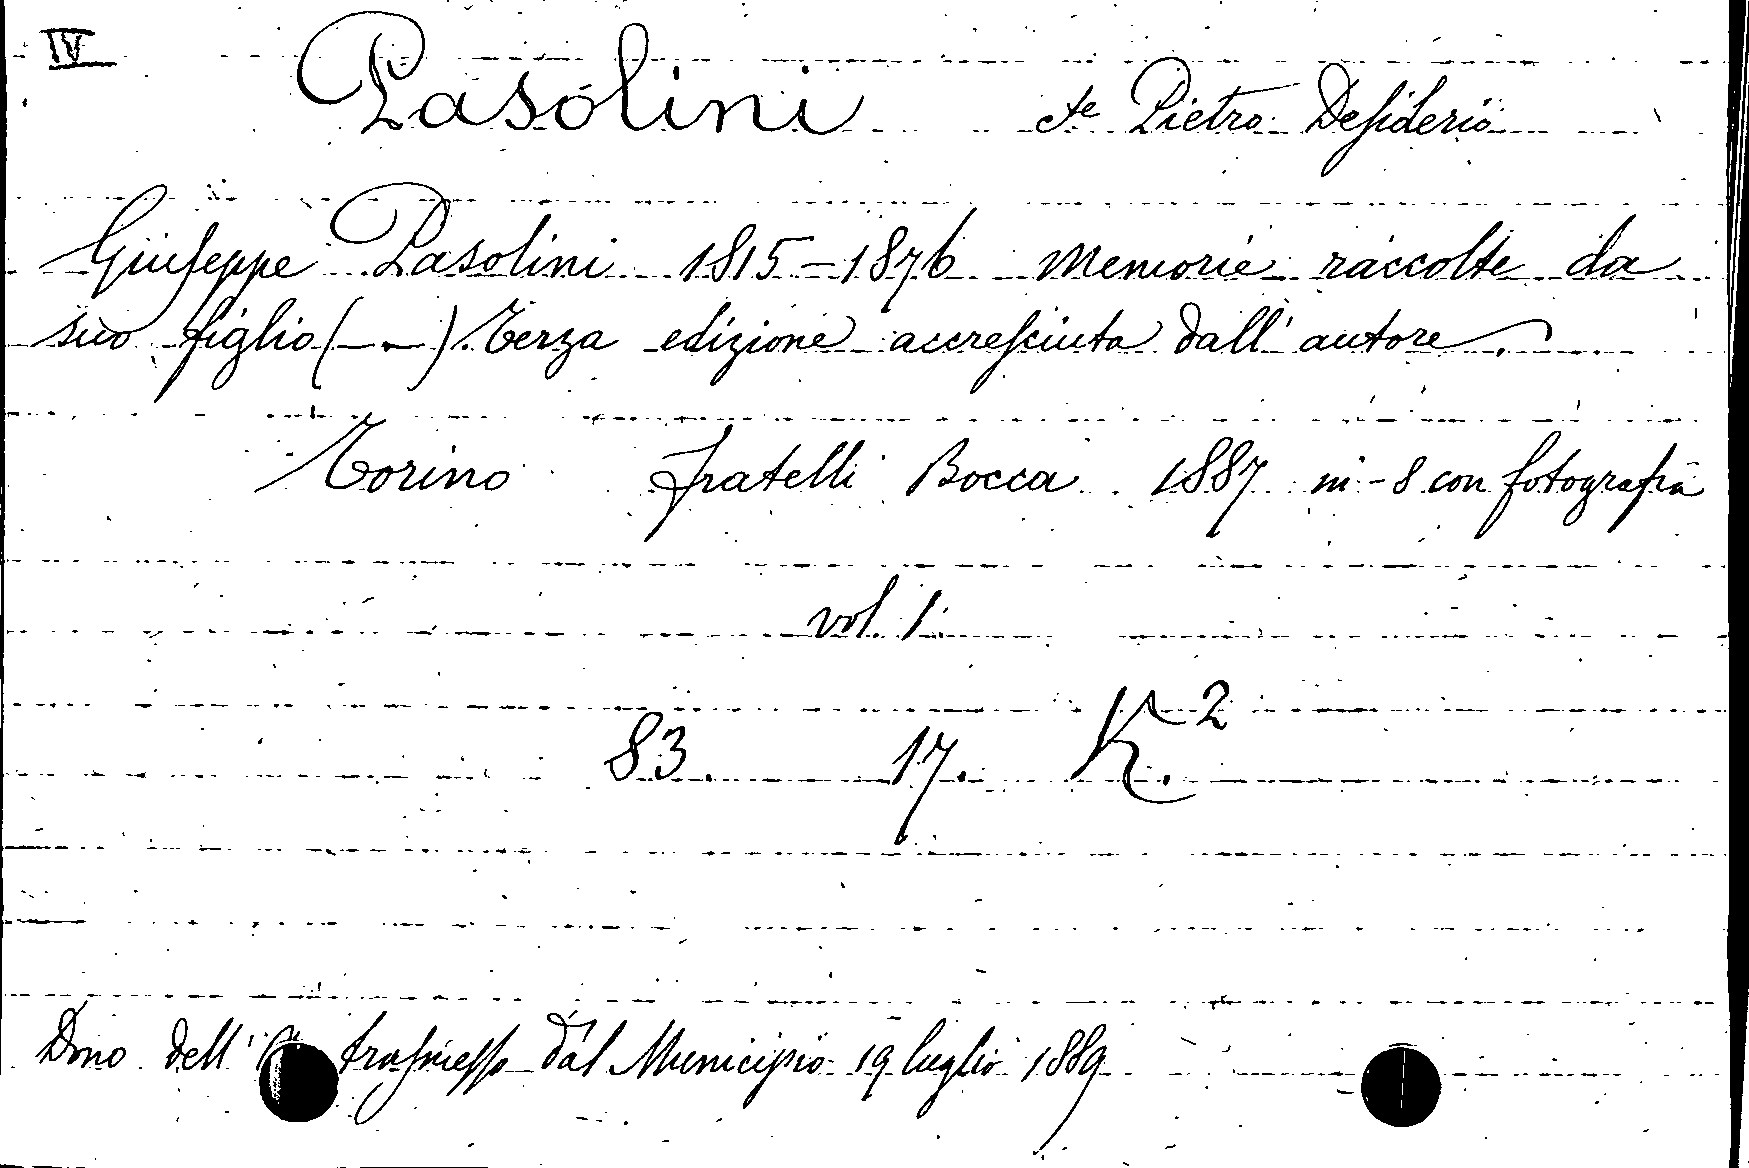 IV
Pasolini cte Pietro Desiderio
Giuseppe Pasolini 1815-1876 Memorie raccolte da
suo figlio (-.-). Terza edizione accresciuta dall'autore.
Torino Fratelli Bocca 1887 in-8 con fotografia
vol. 1.
83. 17. K.2
Dono dell' trasmesso dal Municipio 19 luglio 1889